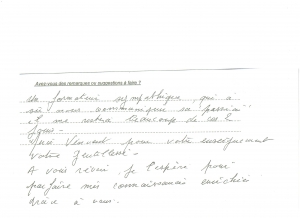 Avez-vous des remarques ou suggestions à faire ?
Un formateur sympathique, qui a
su nous communiquer sa passion
il me restera beaucoup de ces 2
jours.
Merci Vincent pour votre enseignement
votre gentillesse.
A vous revoir je l'espère pour
parfaire mes connaissances enrichies
grâce à vous.